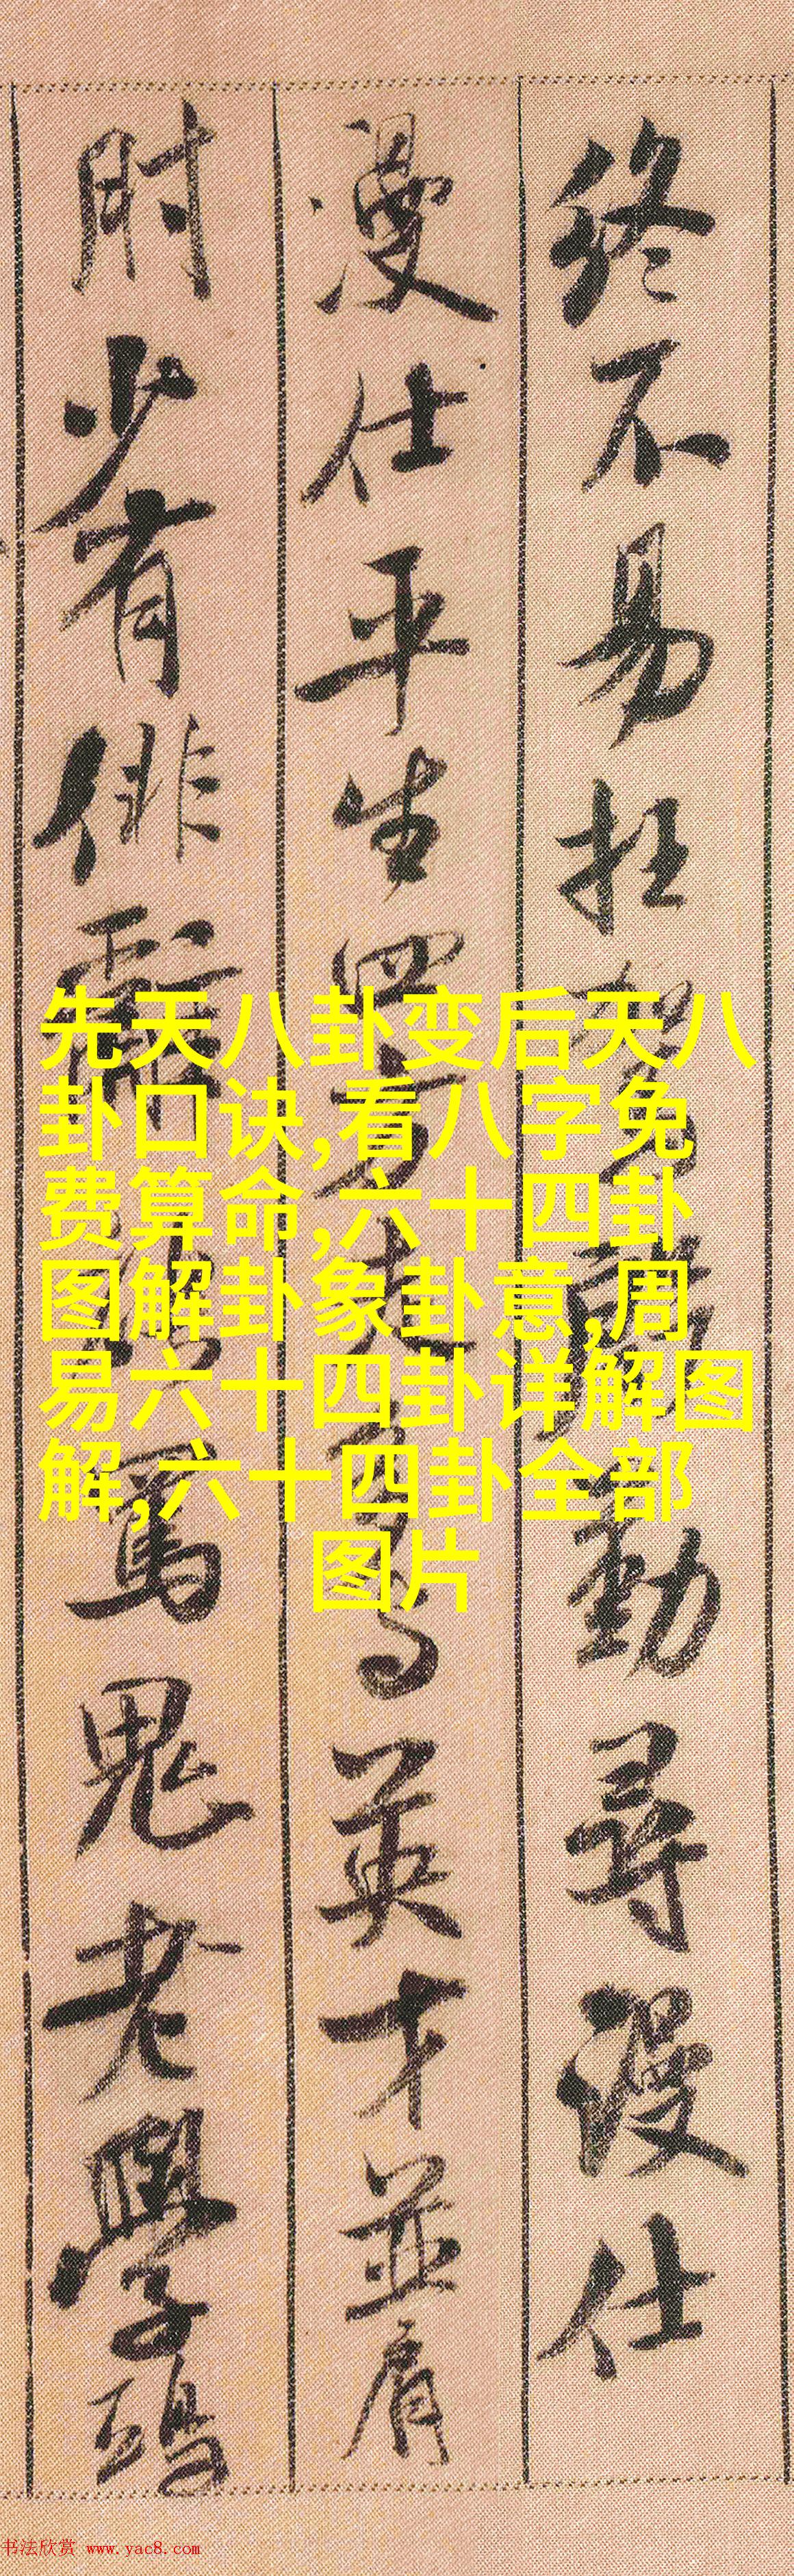 終不易枉駕勤尋漫仕
漫仕平生四方走多與英才並肩
肘少有俳辭能罵鬼老學鴟
先天八卦变后天八
卦口诀,看八字免
费算命,六十四卦
图解卦象卦意,周
易六十四卦详解图
解,六十四卦全部
图片
书法欣赏 www.yac8.com